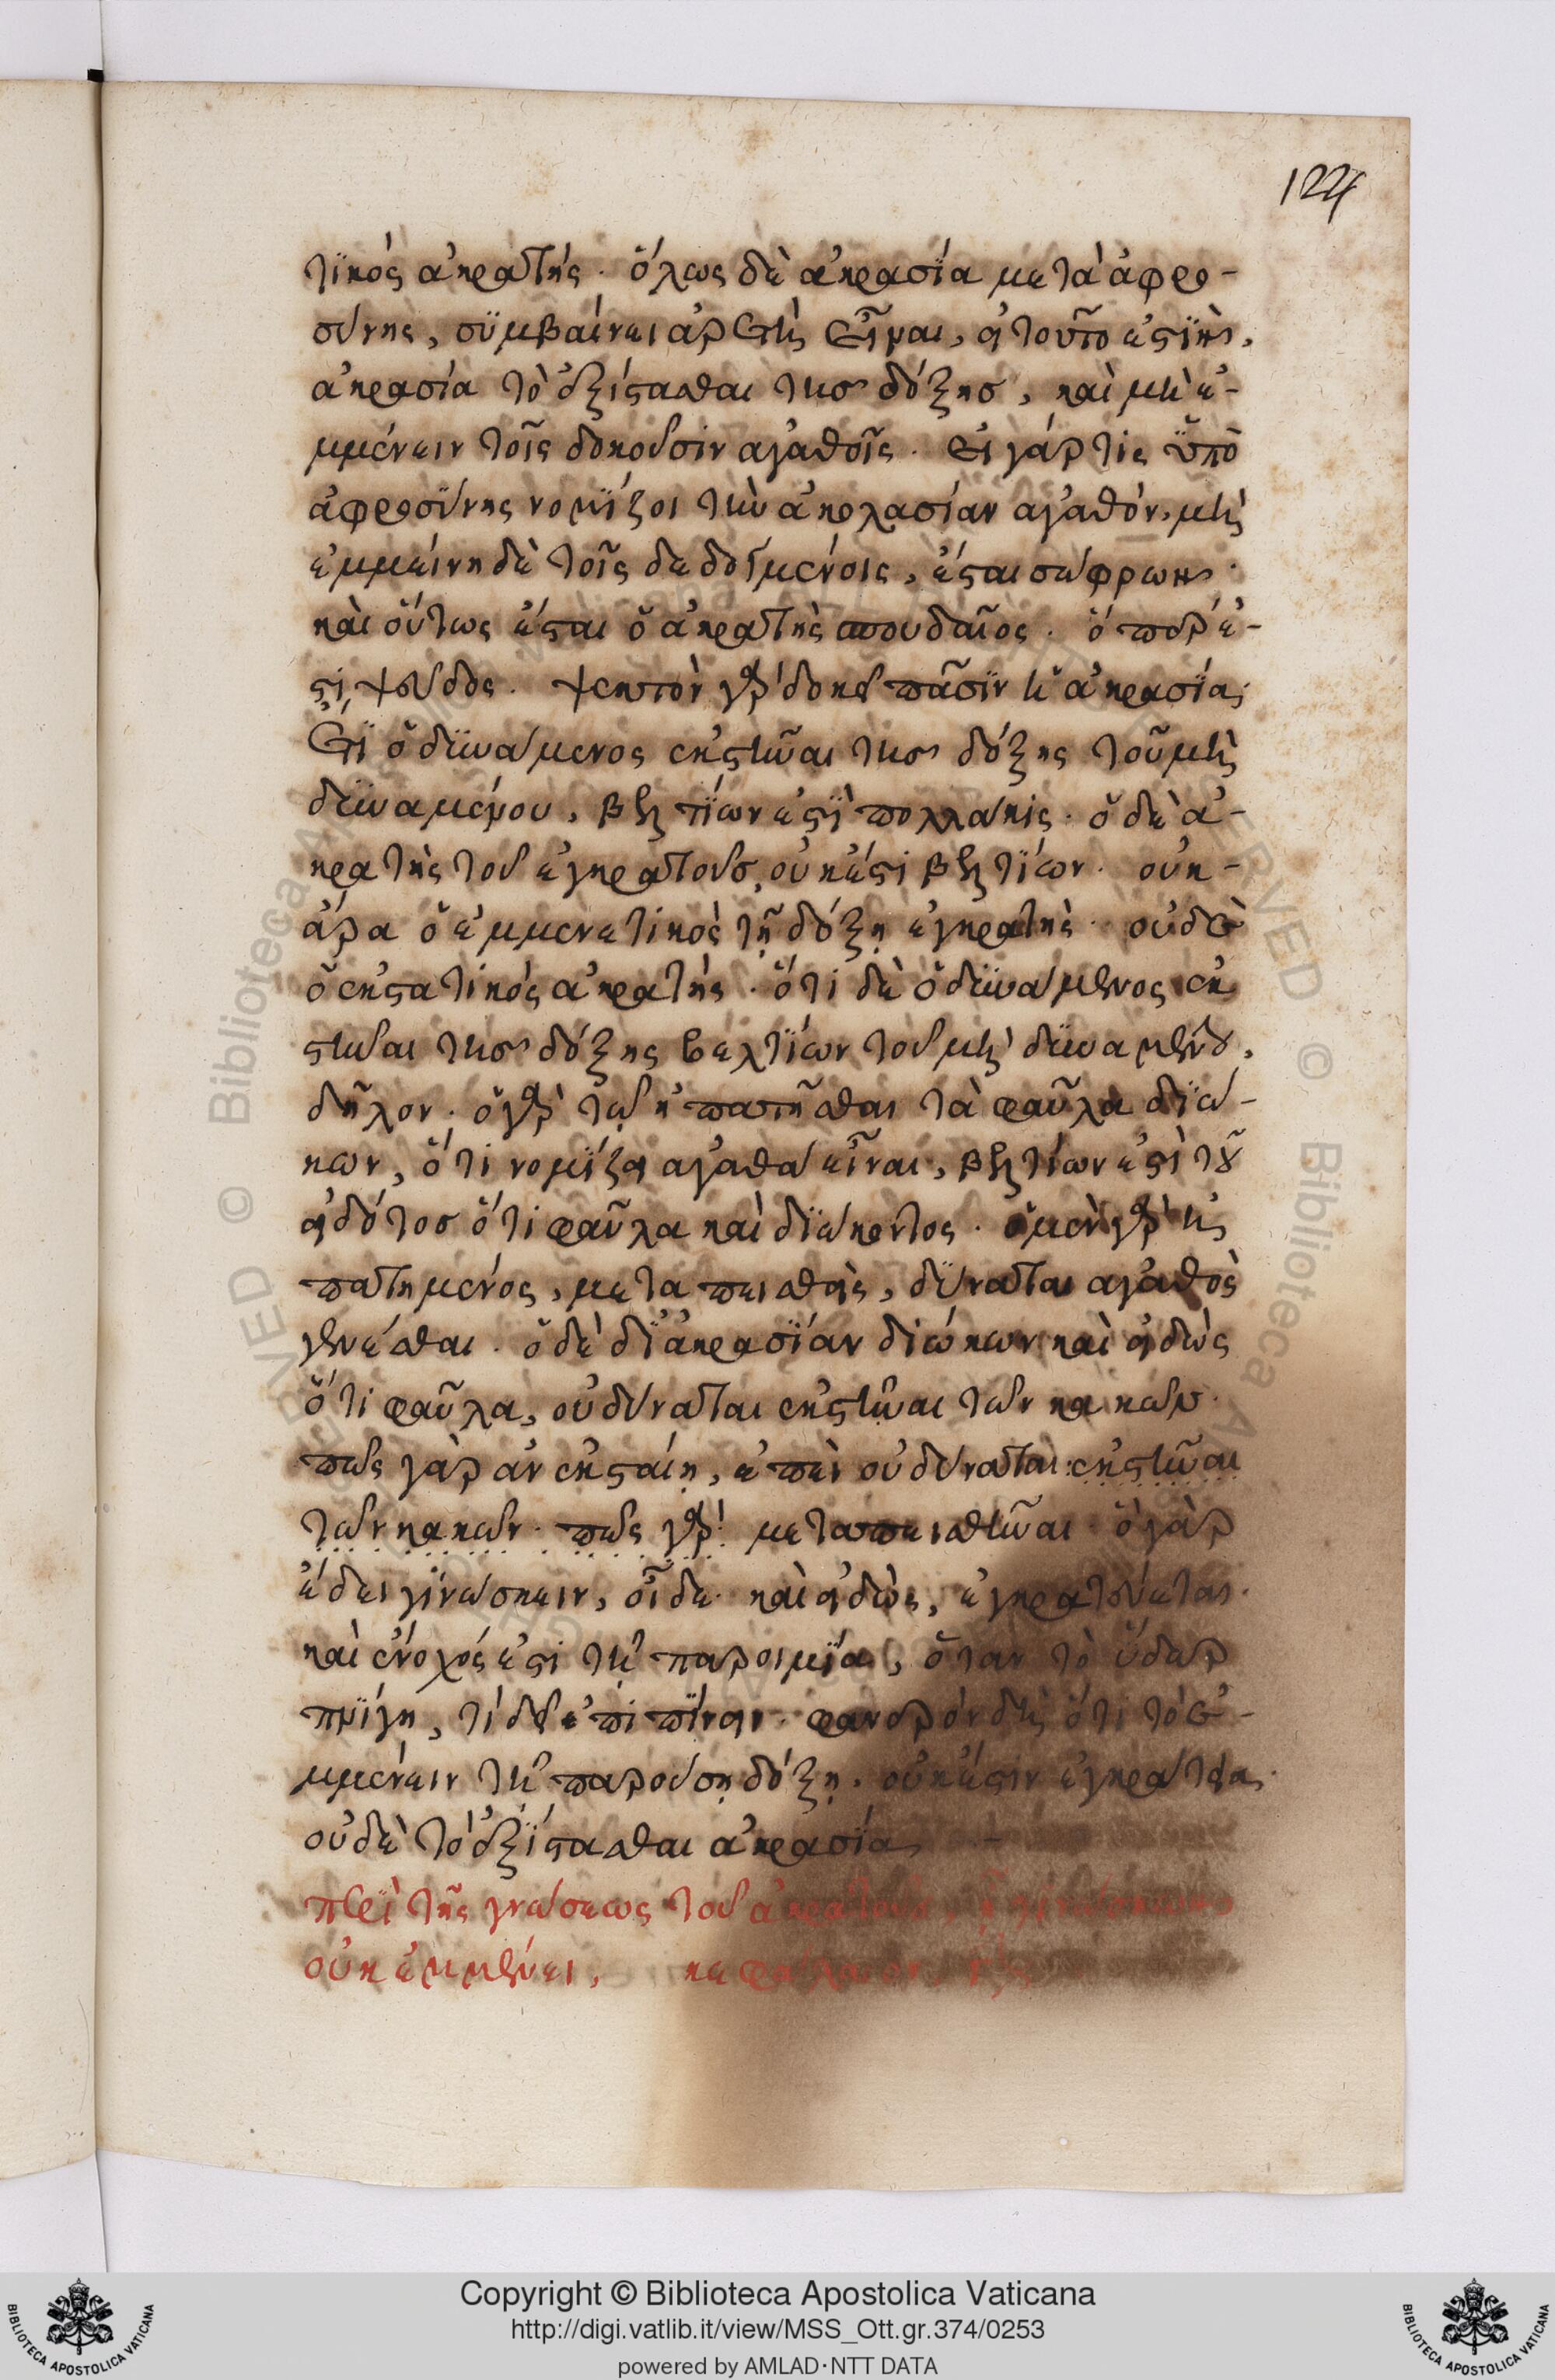 124
τϊκός ἀκρατής· ὅλως δὲ ἀκρασΐα μετὰ ἀφρο-
σύνης, συμβαίνει ἀρετὴ εἶναι, εἰ τοῦτο ἐστὶν,
ἀκρασία τὸ ἐξίστασθαι τῆς δόξης, καὶ μὴ ἐ-
μμένειν τοῖς δοκοῦσιν ἀγαθοῖς. Εἰ γάρ τις ὑπὸ
ἀφροσύνης νομίζοι τὴν ἀκολασίαν ἀγαθόν, μὴ
ἐμμείνη δὲ τοῖς δεδογμένοις, ἔσται σώφρων·
καὶ οὕτως ἔσται ὁ ἀκρατὴς σπουδαῖος· ὅπερ ἐ-
στι ψεῦδος. ψεκτὸν γὰρ δοκεῖ πᾶσιν ἡ ἀκρασία·
Εἰ ὁ δυνάμενος ἐκστῆναι τῆς δόξης τοῦ μὴ
δυναμένου, βελτίων ἐστὶ πολλάκις· ὁ δὲ ἀ-
κρατὴς τοῦ ἐγκρατοῦς, οὐκ ἔστι βελτίων· οὐκ-
ἄρα ὁ ἐμμενετικὸς τῇ δόξῃ ἐγκρατὴς· οὐδὲ
ὁ ἐκστατικός ἀκρατής· ὅτι δὲ ὁ δυνάμενος ἐκ
στῆναι τῆς δόξης βελτίων τοῦ μὴ δυναμένου,
δῆλον· ὁ γὰρ τῷ ἠπατῆσθαι τὰ φαῦλα διώ-
κων, ὅτι νομίζει ἀγαθὰ εἶναι, βελτίων ἐστὶ τοῦ
εἰδότος ὅτι φαῦλα καὶ διώκοντος· ὁ μὲν γὰρ ἠ
πατημένος, μεταπεισθεὶς, δύναται ἀγαθὸς
γενέσθαι· ὁ δὲ δι' ἀκρασίαν διώκων καὶ εἰδὼς
ὅτι φαῦλα, οὐ δύναται ἐκστῆναι τῶν κακῶν·
πῶς γὰρ ἂν ἐκσταίη, ἐπεὶ οὐ δύναται ἐκστῆναι
τῶν κακῶν· πῶς γὰρ μεταπεισθῆναι· ὃ γὰρ
ἔδει γινώσκειν, οἶδε· καὶ εἰδὼς, ἐγκρατεύεται·
καὶ ἔνοχός ἐστι τῇ παροιμίᾳ, ὅταν τὸ ὕδωρ
πνίγη, τί δεῖ ἐπιπίνειν· φανερόν δὴ ὅτι τὸ ἐ-
μμένειν τῇ παρούσῃ δόξῃ, οὐκ ἔστιν ἐγκράτεια·
οὐδὲ τὸ ἐξίστασθαι ἀκρασία
περὶ τῆς γνώσεως τοῦ ἀκρατοῦς, ᾗ γινώσκων
οὐκ ἐμμένει, κεφάλαιον
Copyright © Biblioteca Apostolica Vaticana
http://digi.vatlib.it/view/MSS_Ott.gr.374/0253
powered by AMLAD·NTT DATA